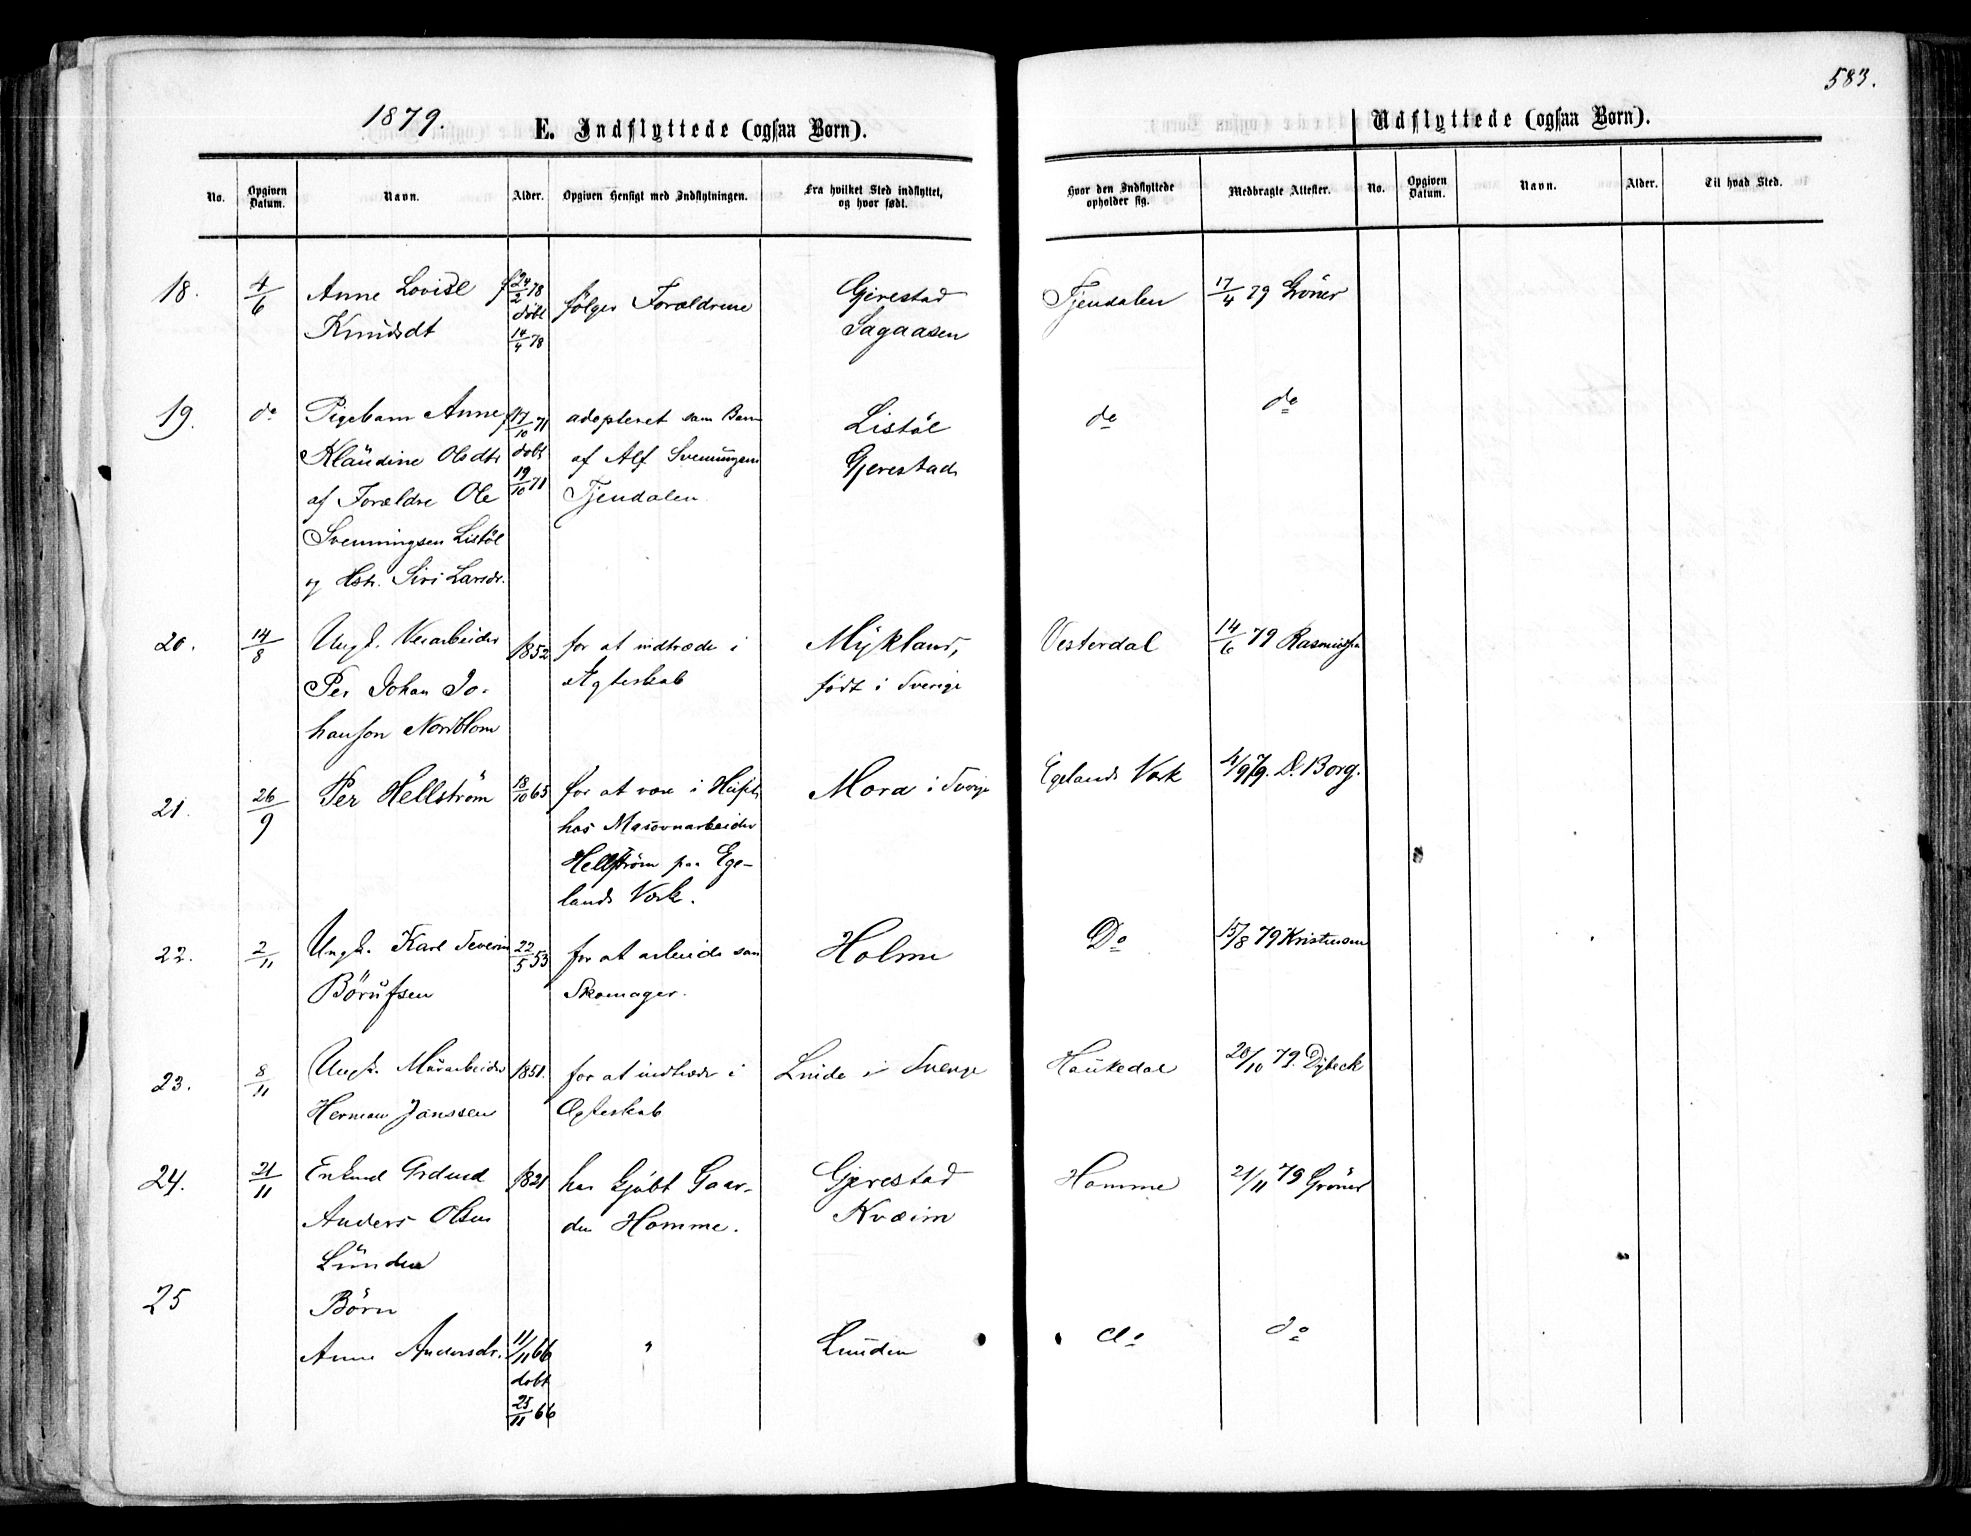 583.
1879. E. Indflyttede (ogsaa Børn). Udflyttede (ogsaa Børn).
No. Opgiven Datum. Navn. Alder. Opgiven Hensigt med Indflytningen. Fra hvilket Sted indflyttet, og hvor født. Hvor den Indflyttede opholder sig. Medbragte Attester. No. Opgiven Datum. Navn. Alder. Til hvad Sted.
18. 4/6 Anne Lovise f 24/2 78 følger Forældrene Gjerestad Tjendalen 17/4 79 Gröner
Knudsdt döbt 14/4 78 Sagaasen
19. do Pigebarn Anne f 17/10 71 adopteret som Barn Listöl do do
Klaudine Olsdtr döbt af Alf Svenningsen Gjerestad
af Forældre Ole 19/10 71 Tjendalen.
Svenningsen Listöl
og Hstr. Siri Larsdr.
20. 14/8 Ungk. Veiarbeider 1852 for at indtræde i Mykland, Vesterdal 14/6 79
Per Johan Jo- Ægteskab født i Sverige
hanson Nordblom
21. 26/9 Per Hellström 18/10 63 for at være i Huset Mora i Sverige Egelands Værk 4/9 79. D. Borg.
hos Masovnarbeider
Hellström paa Ege-
lands Værk.
22. 2/11 Ungk. Karl Severin 22/5 53 for at arbeide som Holme Do 15/8 79 Kristensen
Börufsen Skomager.
23. 8/11 Ungk. Murarbeider 1851. for at indtræde i Linde i Sverige Haukedal 20/10 79. Dybeck
Herman Janssen Ægteskab
24. 21/11 Enkmd Grdmd 1821 har kjöbt Gaar- Gjerestad Homme 21/11 79 Gröner
Anders Olsen den Homme. Kvæim
Lunden
25 Börn
Anne Andersdr. 11/11 66 " Lunden do do
döbt
25/11 66